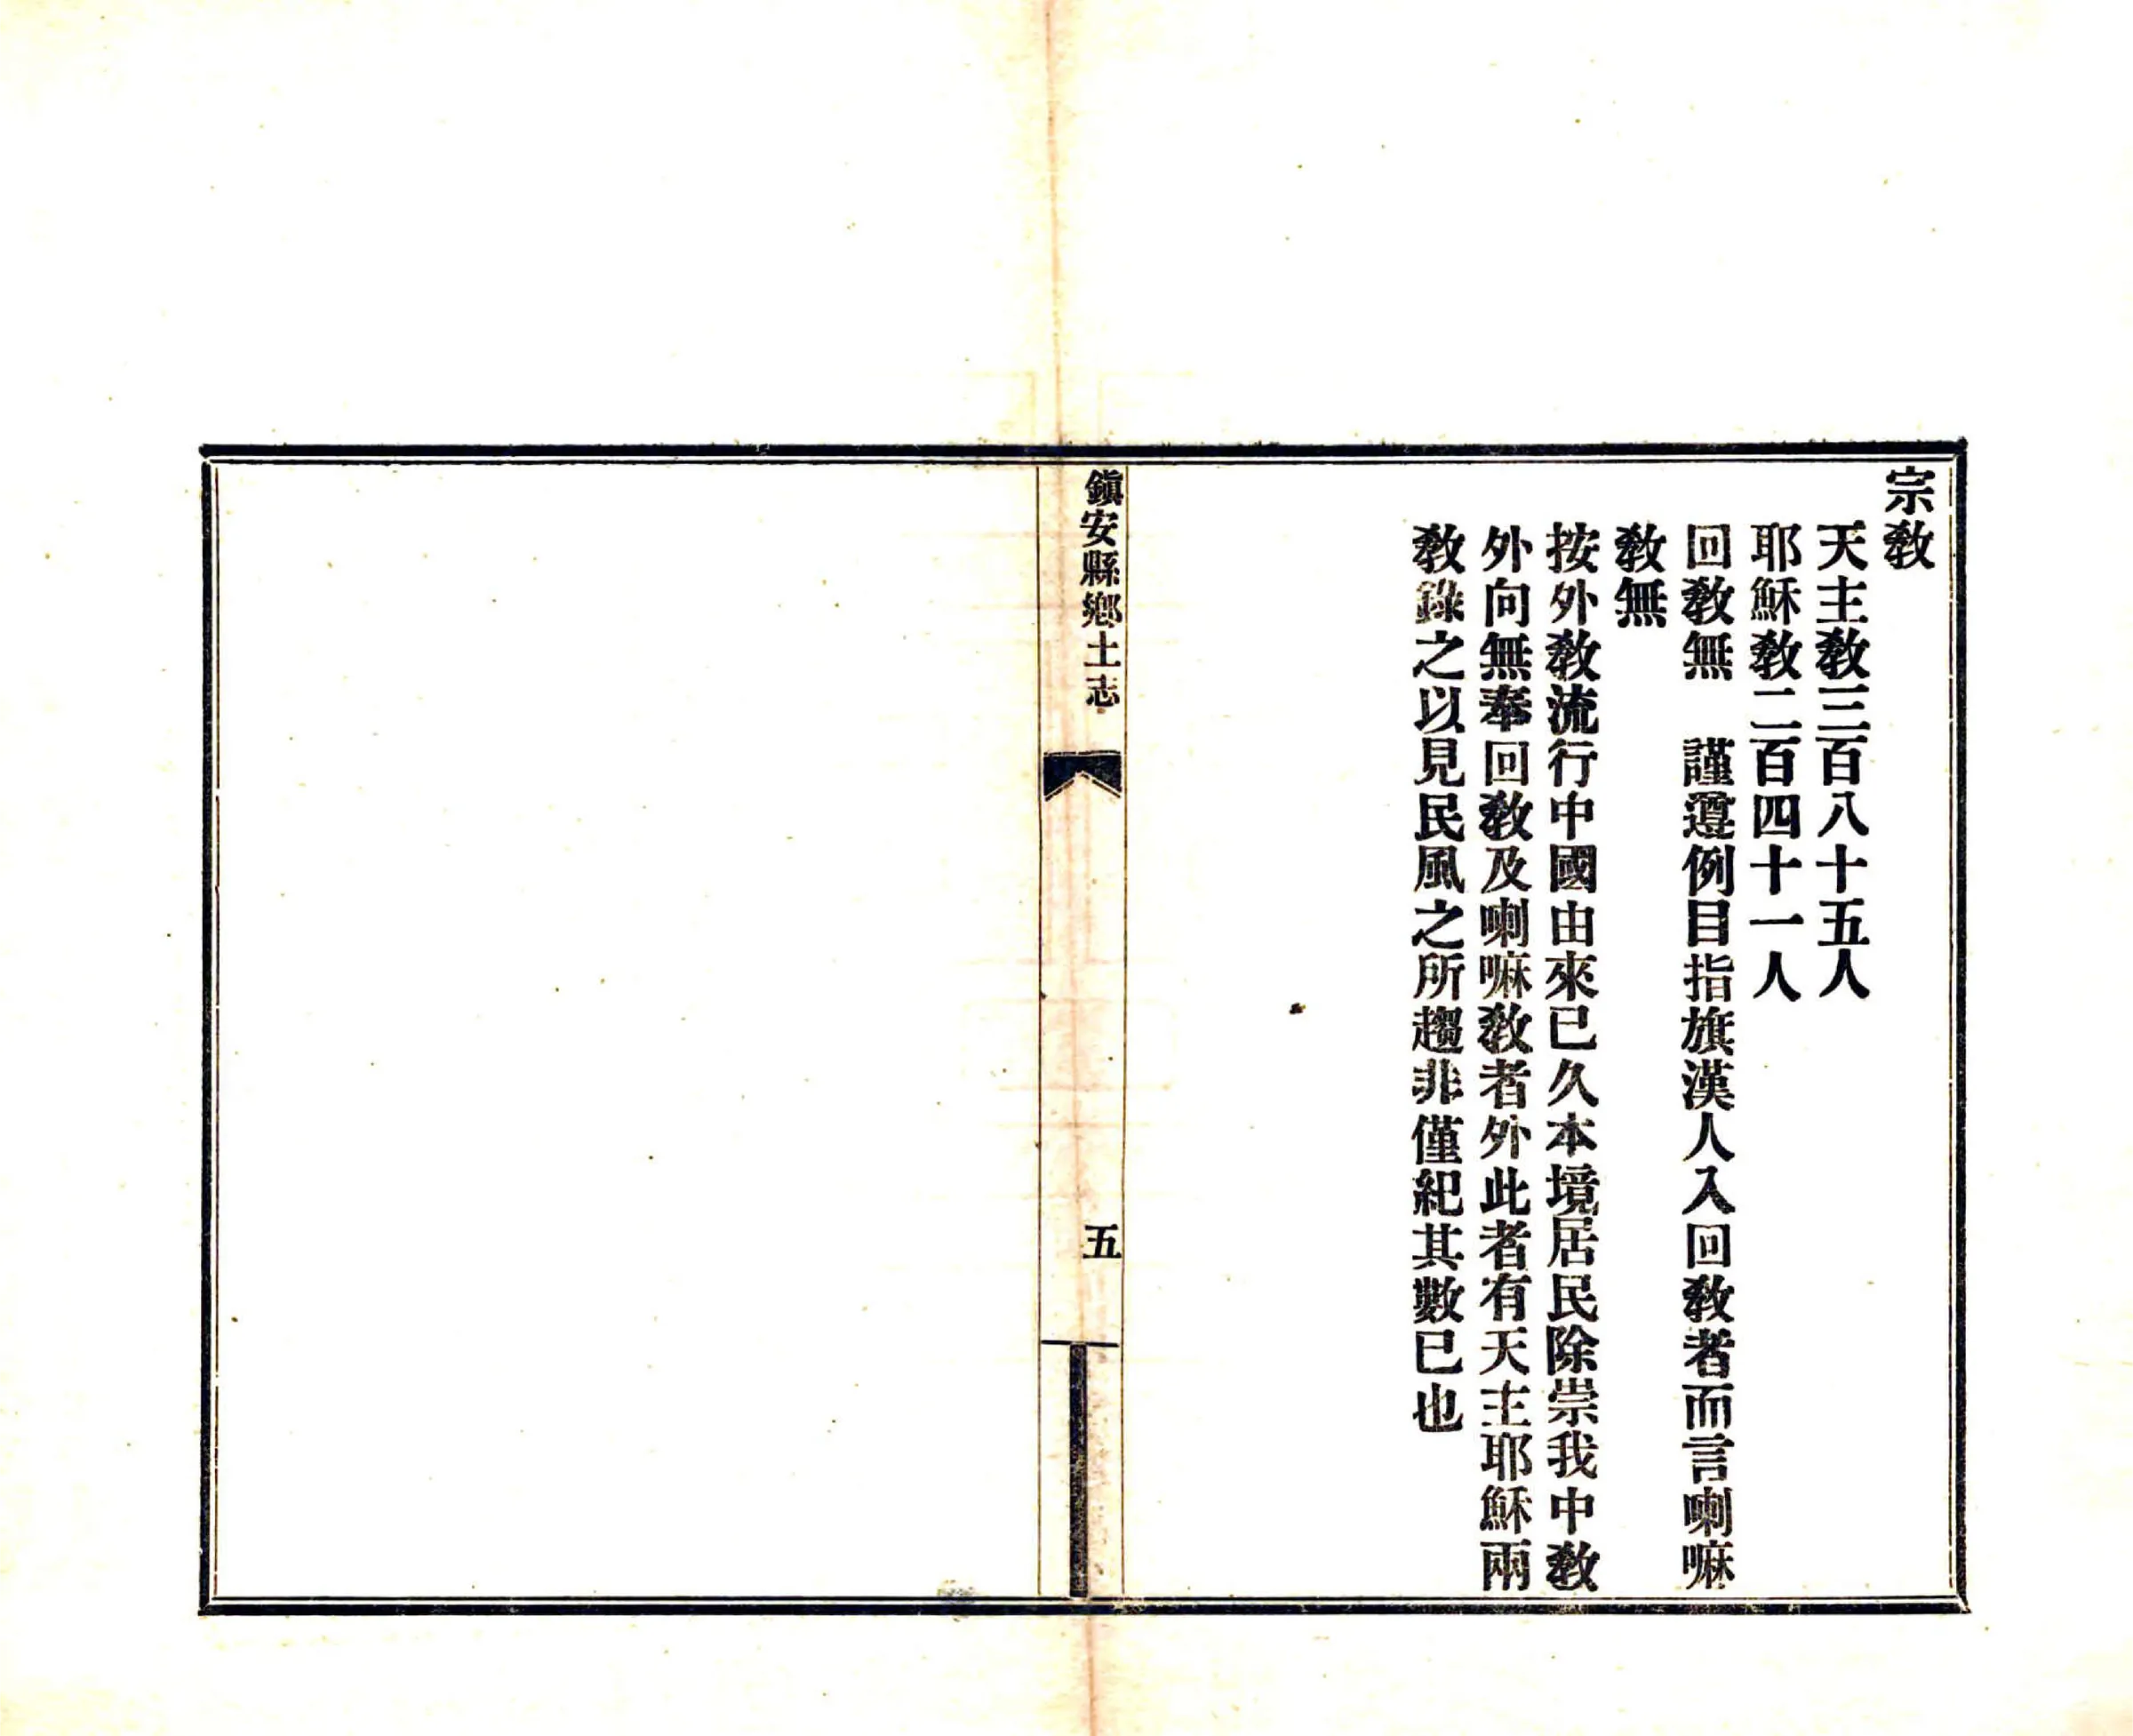 宗教
天主教三百八十五人
耶穌教二百四十一人
回教無　謹遵例目指旗漢人入回教者而言喇嘛
教無
按外教流行中國由來已久本境居民除崇我中教
外向無奉回教及喇嘛教者外此者有天主耶穌兩
教錄之以見民風之所趨非僅紀其數已也
鎭安縣鄉土志
五